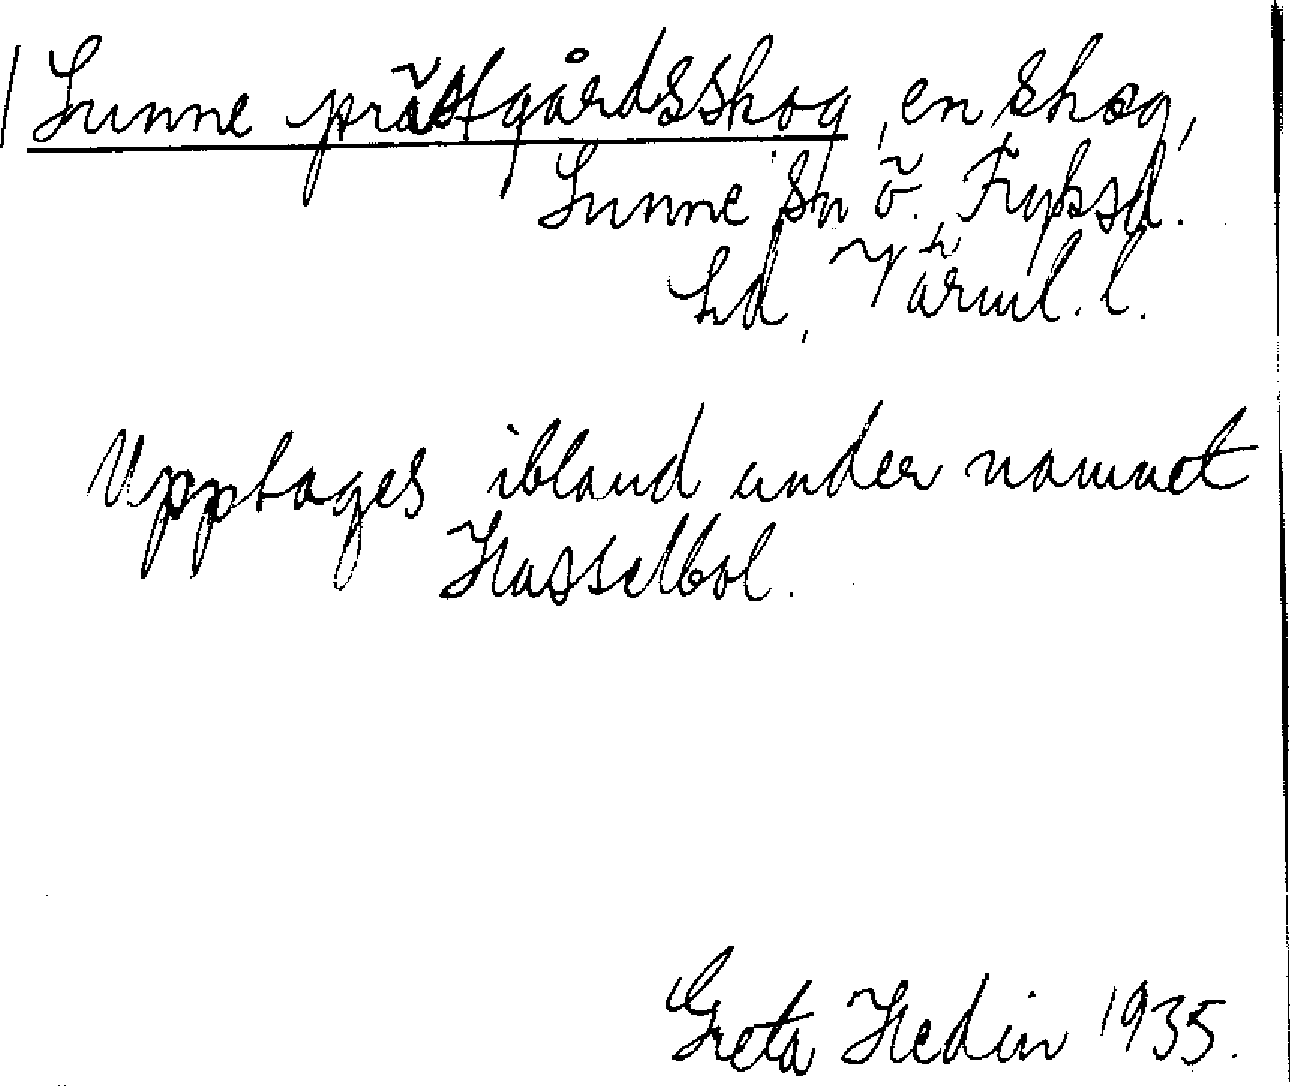 Sunne prästgårdsskog, en skog,
Sunne sn ö. Fryksd.
hd, Värml. l.
Upptages ibland under namnet
Hasselbol.
Greta Hedin 1935.